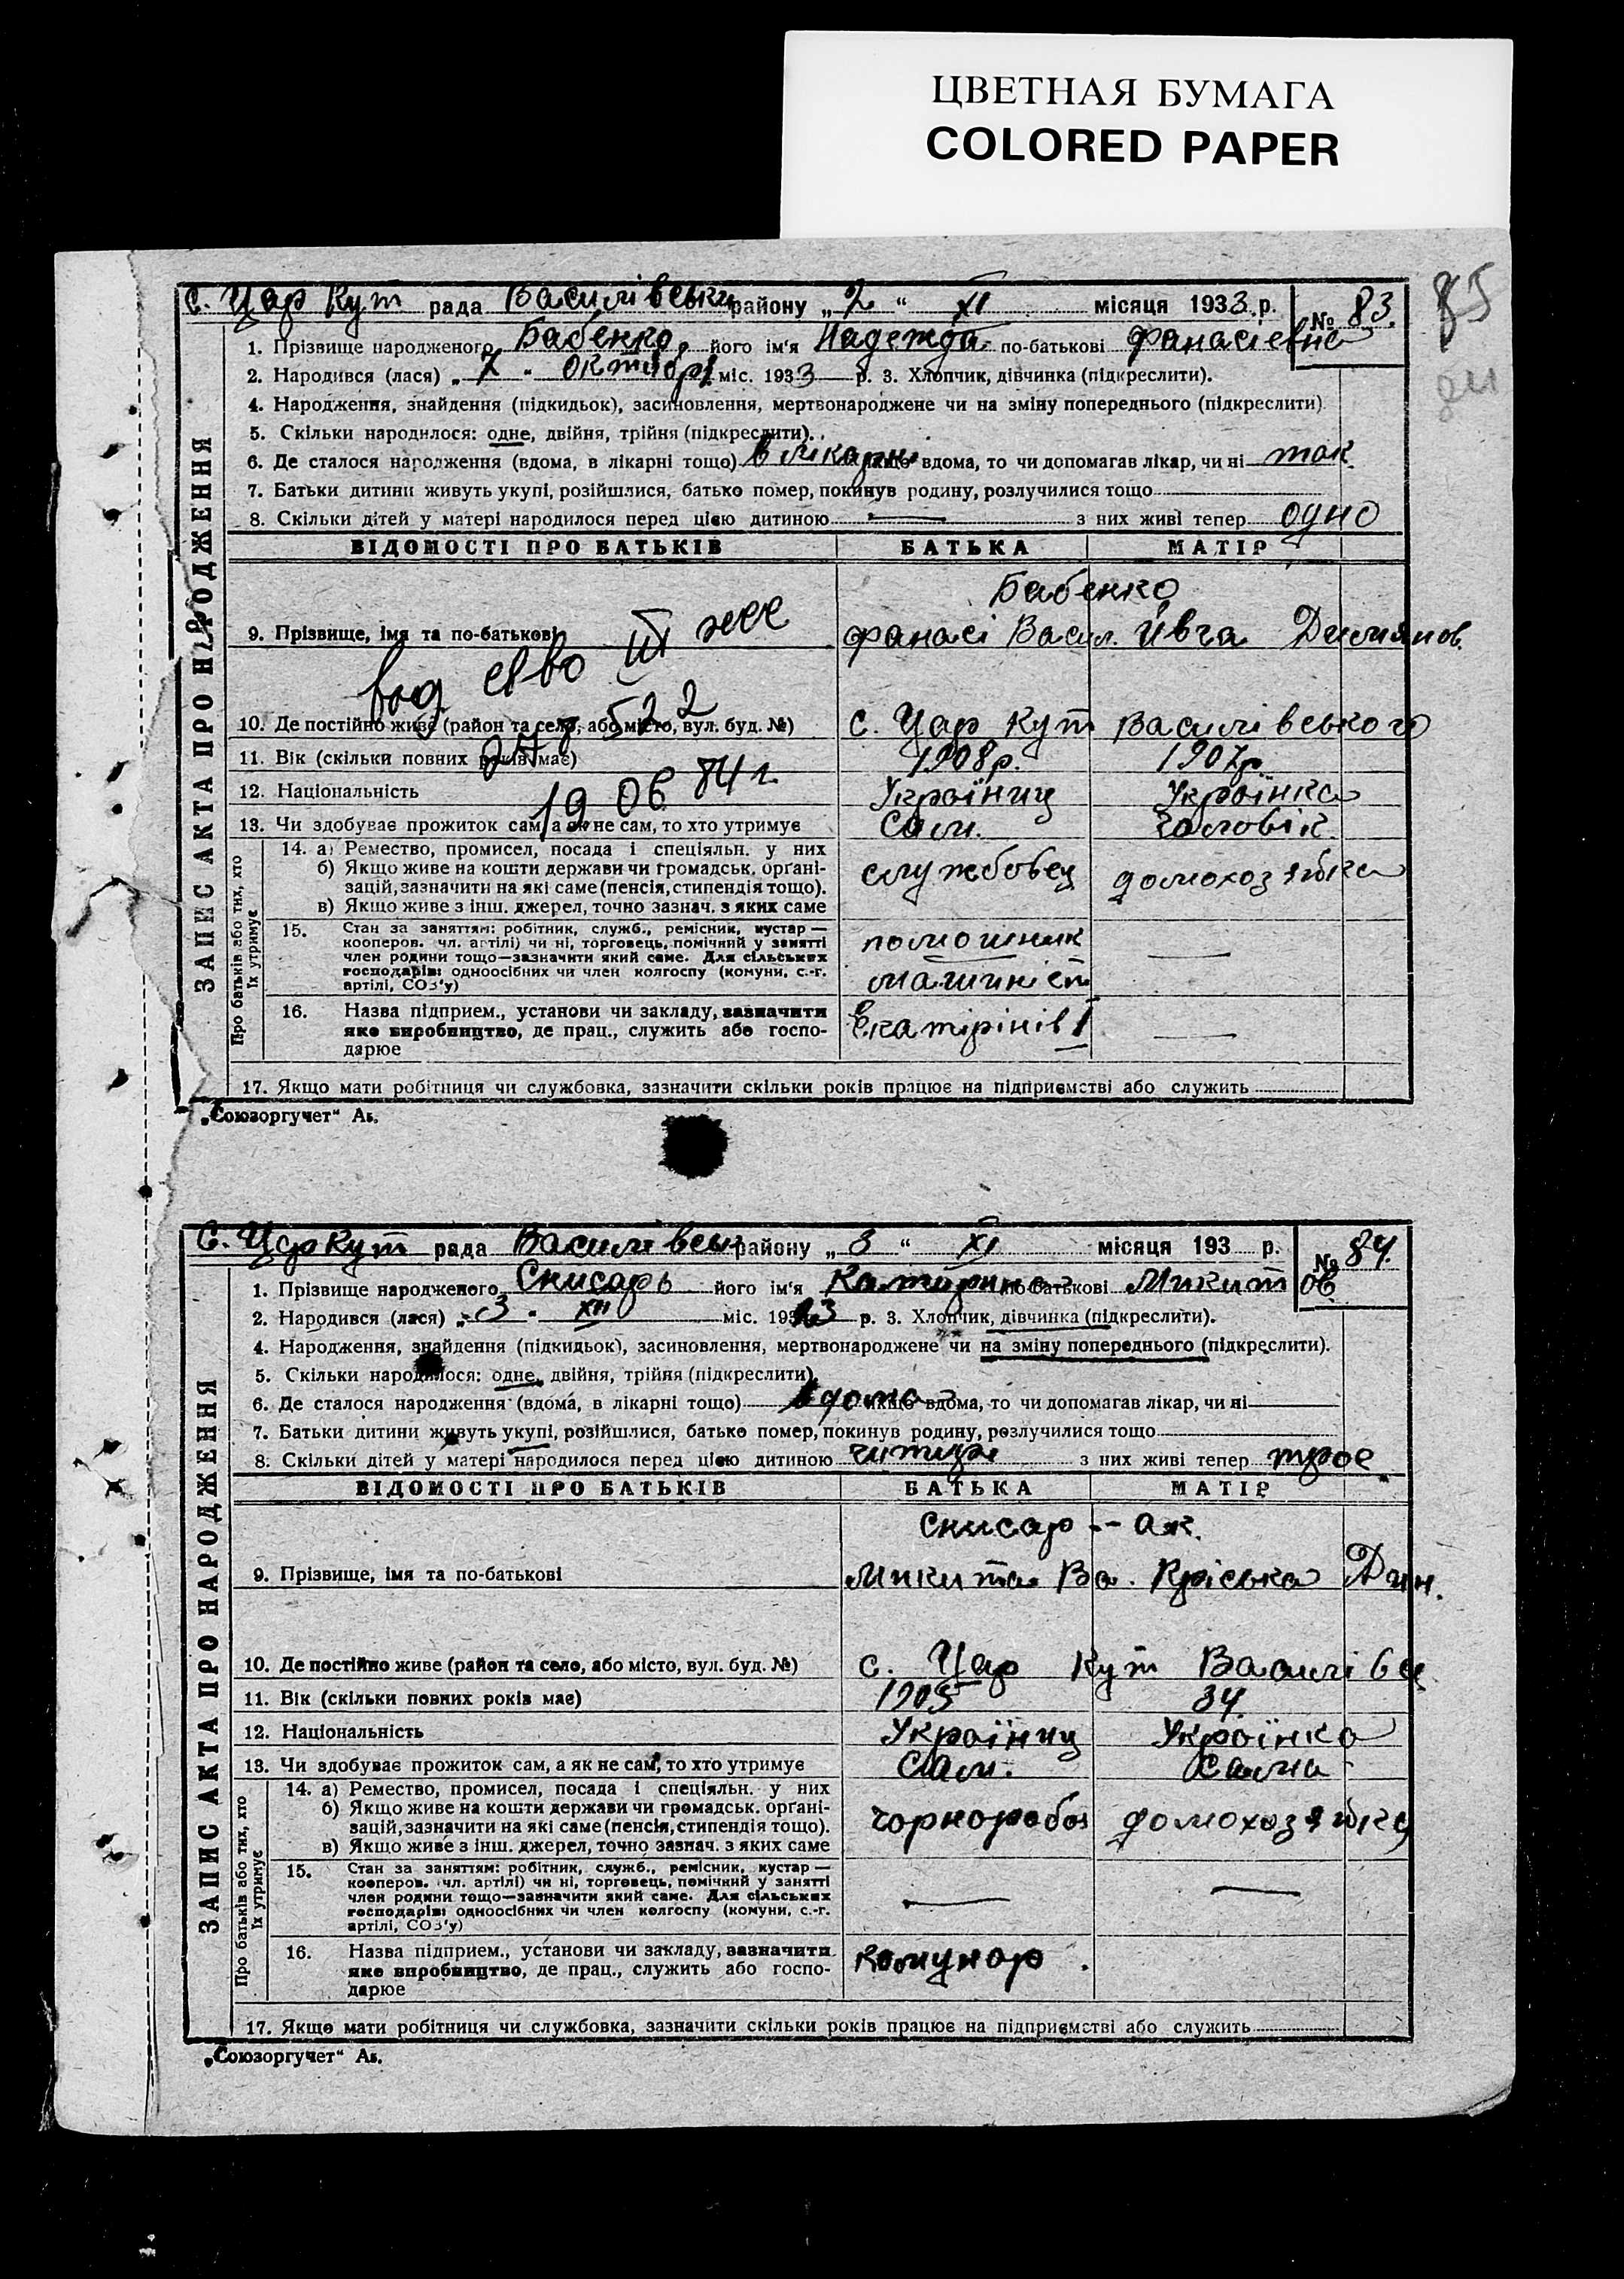 ЦВЕТНАЯ БУМАГА
COLORED PAPER
85
84
с. Цар Кут рада Василівськи району „2“ XI місяця 1933 р. № 83.
ЗАПИС АКТА ПРО НАРОДЖЕННЯ
1. Прізвище народженого Бабенко, його ім'я Надежда по-батькові Фанасіевна
2. Народився (лася) „7“ октября міс. 1933 р. 3. Хлопчик, дівчинка (підкреслити).
4. Народження, знайдення (підкидьок), засиновлення, мертвонароджене чи на зміну попереднього (підкреслити).
5. Скільки народилося: одне, двійня, трійня (підкреслити).
6. Де сталося народження (вдома, в лікарні тощо) в лікарні якщо вдома, то чи допомагав лікар, чи ні так.
7. Батьки дитини живуть укупі, розійшлися, батько помер, покинув родину, розлучилися тощо
8. Скільки дітей у матері народилося перед цією дитиною — з них живі тепер одно
ВІДОМОСТІ ПРО БАТЬКІВ БАТЬКА МАТІР
Бабенко
9. Прізвище, імя та по-батькові Фанасі Васил. Івга Димянов.
выд св во III жс
522
10. Де постійно живе (район та село, або місто, вул. буд. №) с. Цар Кут Василівського
11. Вік (скільки повних років має) 1908р. 1907р
19 06 84 г.
12. Національність Україниц Українка
13. Чи здобуває прожиток сам, а як не сам, то хто утримує Сам. чоловік
Про батьків або тих, хто їх утримує
14. а) Ремество, промисел, посада і спеціяльн. у них
б) Якщо живе на кошти держави чи громадськ. орґані-
зацій, зазначити на які саме (пенсія, стипендія тощо).
в) Якщо живе з інш. джерел, точно зазнач. з яких саме
службовец домохозяйка
15. Стан за заняттям: робітник, служб., ремісник, кустар —
кооперов. чл. артілі) чи ні, торговець, помічний у занятті
член родини тощо—зазначити який саме. Для сільських
господарів: одноосібних чи член колгоспу (комуни, с.-г.
артілі, СОЗ'у)
помошник —
машиніст
16. Назва підприєм., установи чи закладу, зазначити
яке виробництво, де прац., служить або госпо-
дарює
Екатірінів I —
17. Якщо мати робітниця чи службовка, зазначити скільки років працює на підприємстві або служить
„Союзоргучет“ Ав.
С. Цар Кут рада Василівськ району „3“ XI місяця 193 р. № 84.
ЗАПИС АКТА ПРО НАРОДЖЕННЯ
1. Прізвище народженого Снисарь його ім'я Катирина по-батькові Микитов
2. Народився (лася) „3“ XII міс. 1933 р. 3. Хлопчик, дівчинка (підкреслити).
4. Народження, знайдення (підкидьок), засиновлення, мертвонароджене чи на зміну попереднього (підкреслити).
5. Скільки народилося: одне, двійня, трійня (підкреслити)
6. Де сталося народження (вдома, в лікарні тощо) вдома якщо вдома, то чи допомагав лікар, чи ні
7. Батьки дитини живуть укупі, розійшлися, батько помер, покинув родину, розлучилися тощо
8. Скільки дітей у матері народилося перед цією дитиною читири з них живі тепер троє
ВІДОМОСТІ ПРО БАТЬКІВ БАТЬКА МАТІР
Снисар -- ак.
9. Прізвище, імя та по-батькові Микита Ва. Кріська Дин.
10. Де постійно живе (район та село, або місто, вул. буд. №) с. Цар Кут Василівц
11. Вік (скільки повних років має) 1905 34
12. Національність Україниц Українка
13. Чи здобуває прожиток сам, а як не сам, то хто утримує Сам. Сама
Про батьків або тих, хто їх утримує
14. а) Ремество, промисел, посада і спеціяльн. у них
б) Якщо живе на кошти держави чи громадськ. орґані-
зацій, зазначити на які саме (пенсія, стипендія тощо).
в) Якщо живе з інш. джерел, точно зазнач. з яких саме
чорноробоч домохозяйка
15. Стан за заняттям: робітник, служб., ремісник, кустар —
кооперов. чл. артілі) чи ні, торговець, помічний у занятті
член родини тощо—зазначити який саме. Для сільських
господарів: одноосібних чи член колгоспу (комуни, с.-г.
артілі, СОЗ'у)
— —
16. Назва підприєм., установи чи закладу, зазначити
яке виробництво, де прац., служить або госпо-
дарює
комунар.
17. Якщо мати робітниця чи службовка, зазначити скільки років працює на підприємстві або служить
„Союзоргучет“ Ав.